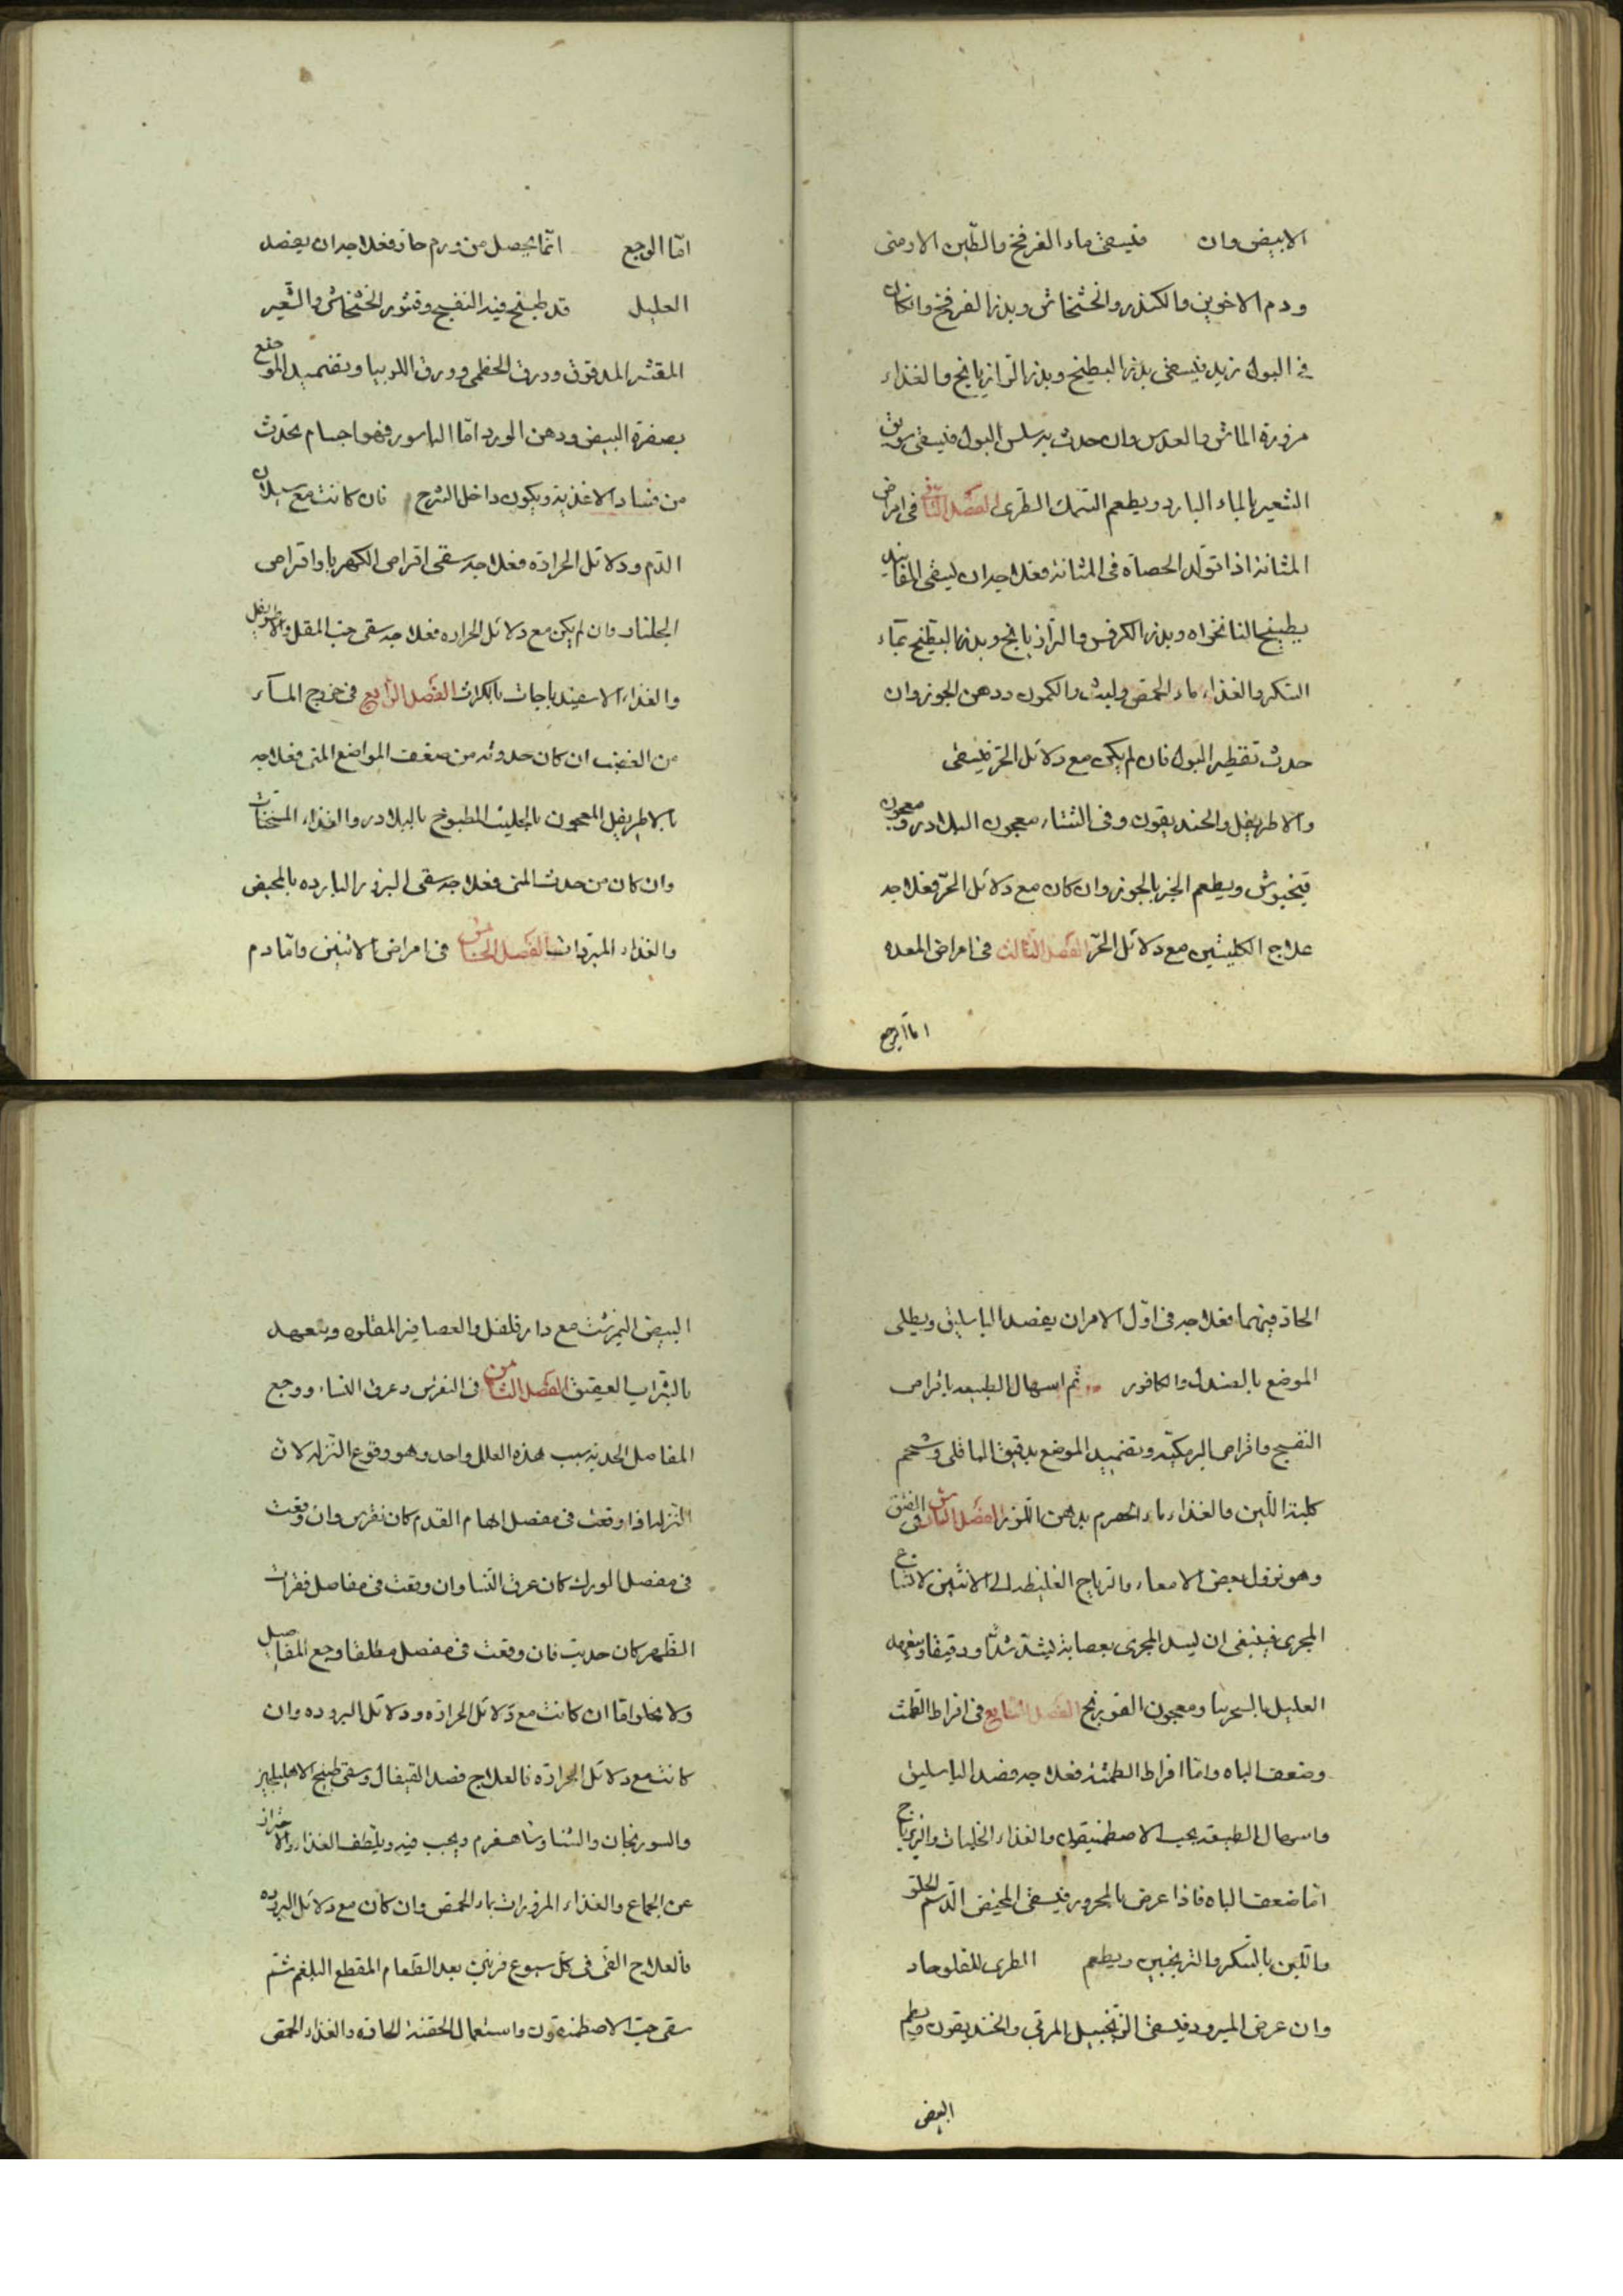 الابيض وان فليسقى ماء الفرفخ والطين الارمنى
ودم الاخوين والكندر والخشخاش وبذر الفرفخ وانكان
فى البول فليسقى بذر البطيخ وبذر الرازيانج والغذاء
مزورة الماش والعدس وان حدث به سلس البول فليسقى سويق
الشعير بالماء البارد ويطعم السمك الطرى الفصل الثانى فى امراض
المثانة اذا تولد الحصاة فى المثانة فعلاجه ان ليسقى
بطبيخ النانخواه وبذر الكرفس والرازيانج وبذر البطيخ بماء
السكر والغذاء ماء الحمص والكمون ودهن الجوز وان
حدث تقطير البول فان لم يكن مع دلائل الحر فليسقى
والاطريفل والحنديقون وفى الشتاء معجون البلادر ومعجون
ويطعم الخبز بالجوز وان كان مع دلائل الحر فعلاجه
علاج الكليتين مع دلائل الحر الفصل الثالث فى امراض المعده
اما الوجع
اما الوجع انما يحصل من ورم حاد فعلاجه ان يفصد
العليل قد طبخ فيه البنفسج وقشور الخشخاش والشعير
المقشر المدقوق وورق الخطمى وورق اللوبيا وتضميد الموضع
بصفرة البيض ودهن الورد اما الباسور فهو اجسام تحدث
من فساد الاغذية ويكون داخل الشرج فان كانت مع سيلان
الدم ودلائل الحرارة فعلاجه سقى اقراص الكهربا واقراص
الجلنار وان لم يكن مع دلائل الحراره فعلاجه سقى حب المقل والاطريفل
والغذاء الاسفيدباجات بالكراث الفصل الرابع فى خروج الماء
من القضيب ان كان حدوثه من ضعف المواضع المنى فعلاجه
بالاطريفل المعجون المطبوخ بالبلادر والغذاء المسخنات
وان كان من حدت المنى فعلاجه سقى البزور البارده بالمخيض
والغذاء المبردات الفصل الخامس فى امراض الانثيين واما دم
الحاد فيهما فعلاجه فى اول الامر ان يفصد الباسليق ويطلى
الموضع بالصندل والكافور ثم اسهال الطبيعه باقراص
البنفسج واقراص البرمكيه وتضميد الموضع بدقيق الباقلى وشحم
والغذاء ماء الحصرم بدهن اللوز الفصل السادس فى الفتق
وهو نزول بعض الامعاء والرياح الغليظه الى الانثيين لاتساع
المجرى فينبغى ان ليسد المجرى بعصابة ليشد شدا
العليل بالسجرينا ومعجون الفصل السابع فى افراط الطمث
وضعف الباه واما افراط الطمث فعلاجه فصد الباسليق
واسهال الطبيعه بحب الاصطمخيقون والغذاء الخليات
اما ضعف الباه فاذا عرض بالمحرور فليسقى المخيض الدسم الحلو
واللبن بالسكر والترنجبين ويطعم الطرى
وان عرض المبرود فليسقى الزنجبيل المربى والخنديقون ويطعم
البيض
البيض النيمرشت مع دار فلفل والعصافير المقلوه ويتعهد
بالشراب العتيق الفصل الثامن فى النقرس وعرق النساء ووجع
المفاصل الحدبة سبب هذه العلل واحد وهو وقوع النزله لان
النزله اذا وقعت فى مفصل ابهام القدم كان نقرس وان وقعت
فى مفصل الورك كان عرق النسا وان وقعت فى مفاصل فقرات
الظهر كان حدبة فان وقعت فى مفصل مطلقا وجع المفاصل
ولا يخلو اما ان كانت مع دلائل الحراره ودلائل البروده وان
كانت مع دلائل الحرارة فالعلاج فصد القيفال وسقى طبيخ
والسورنجان والسنا وشاهسفرم ويلطف الغذاء والاحتراز
عن الجماع والغذاء المزورات بماء الحمص وان كان مع دلائل البروده
فالعلاج القى فى كل سبوع مرتين بعد الطعام المقطع البلغم ثم
سقى حب الاصطمخيقون واستعمال الحقنه الحاده والغذاء الحمص